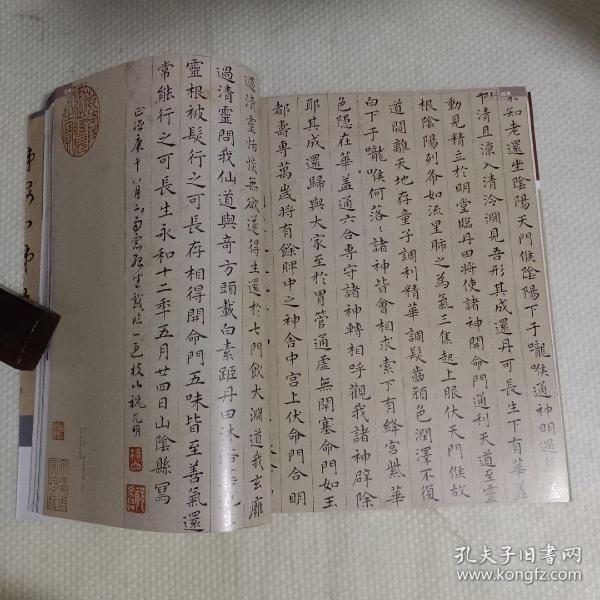 不知老還坐陰陽天門候陰陽下于嚨喉通神明過
下清且涼入清泠淵見吾形其成還丹可長生下有華蓋
動見精立於明堂臨丹田將使諸神開命門通利天道至靈
根陰陽列布如流星肺之為氣三焦起上眼伏天門候故
道闚離天地存童子調利精華調髮齒顏色潤澤不復
白下于嚨喉何落落諸神皆會相求索下有絳宮紫華
色隱在華蓋通六合專守諸神轉相呼觀我諸神辟除
耶其成還歸與大家至於胃管通虛無閉塞命門如玉
都壽專萬歲將有餘脾中之神舍中宮上伏命門合明
過清靈恬惔無欲遂得生還於七門飲大淵道我玄雍
過清靈問我仙道與奇方頭載白素距丹田沐
靈根被髮行之可長存相得開命門五味皆至善氣還
常能行之可長生永和十二年五月廿四日山陰縣寫
正德庚午八月
枝山祝允明
孔夫子旧书网
www.kongfz.com